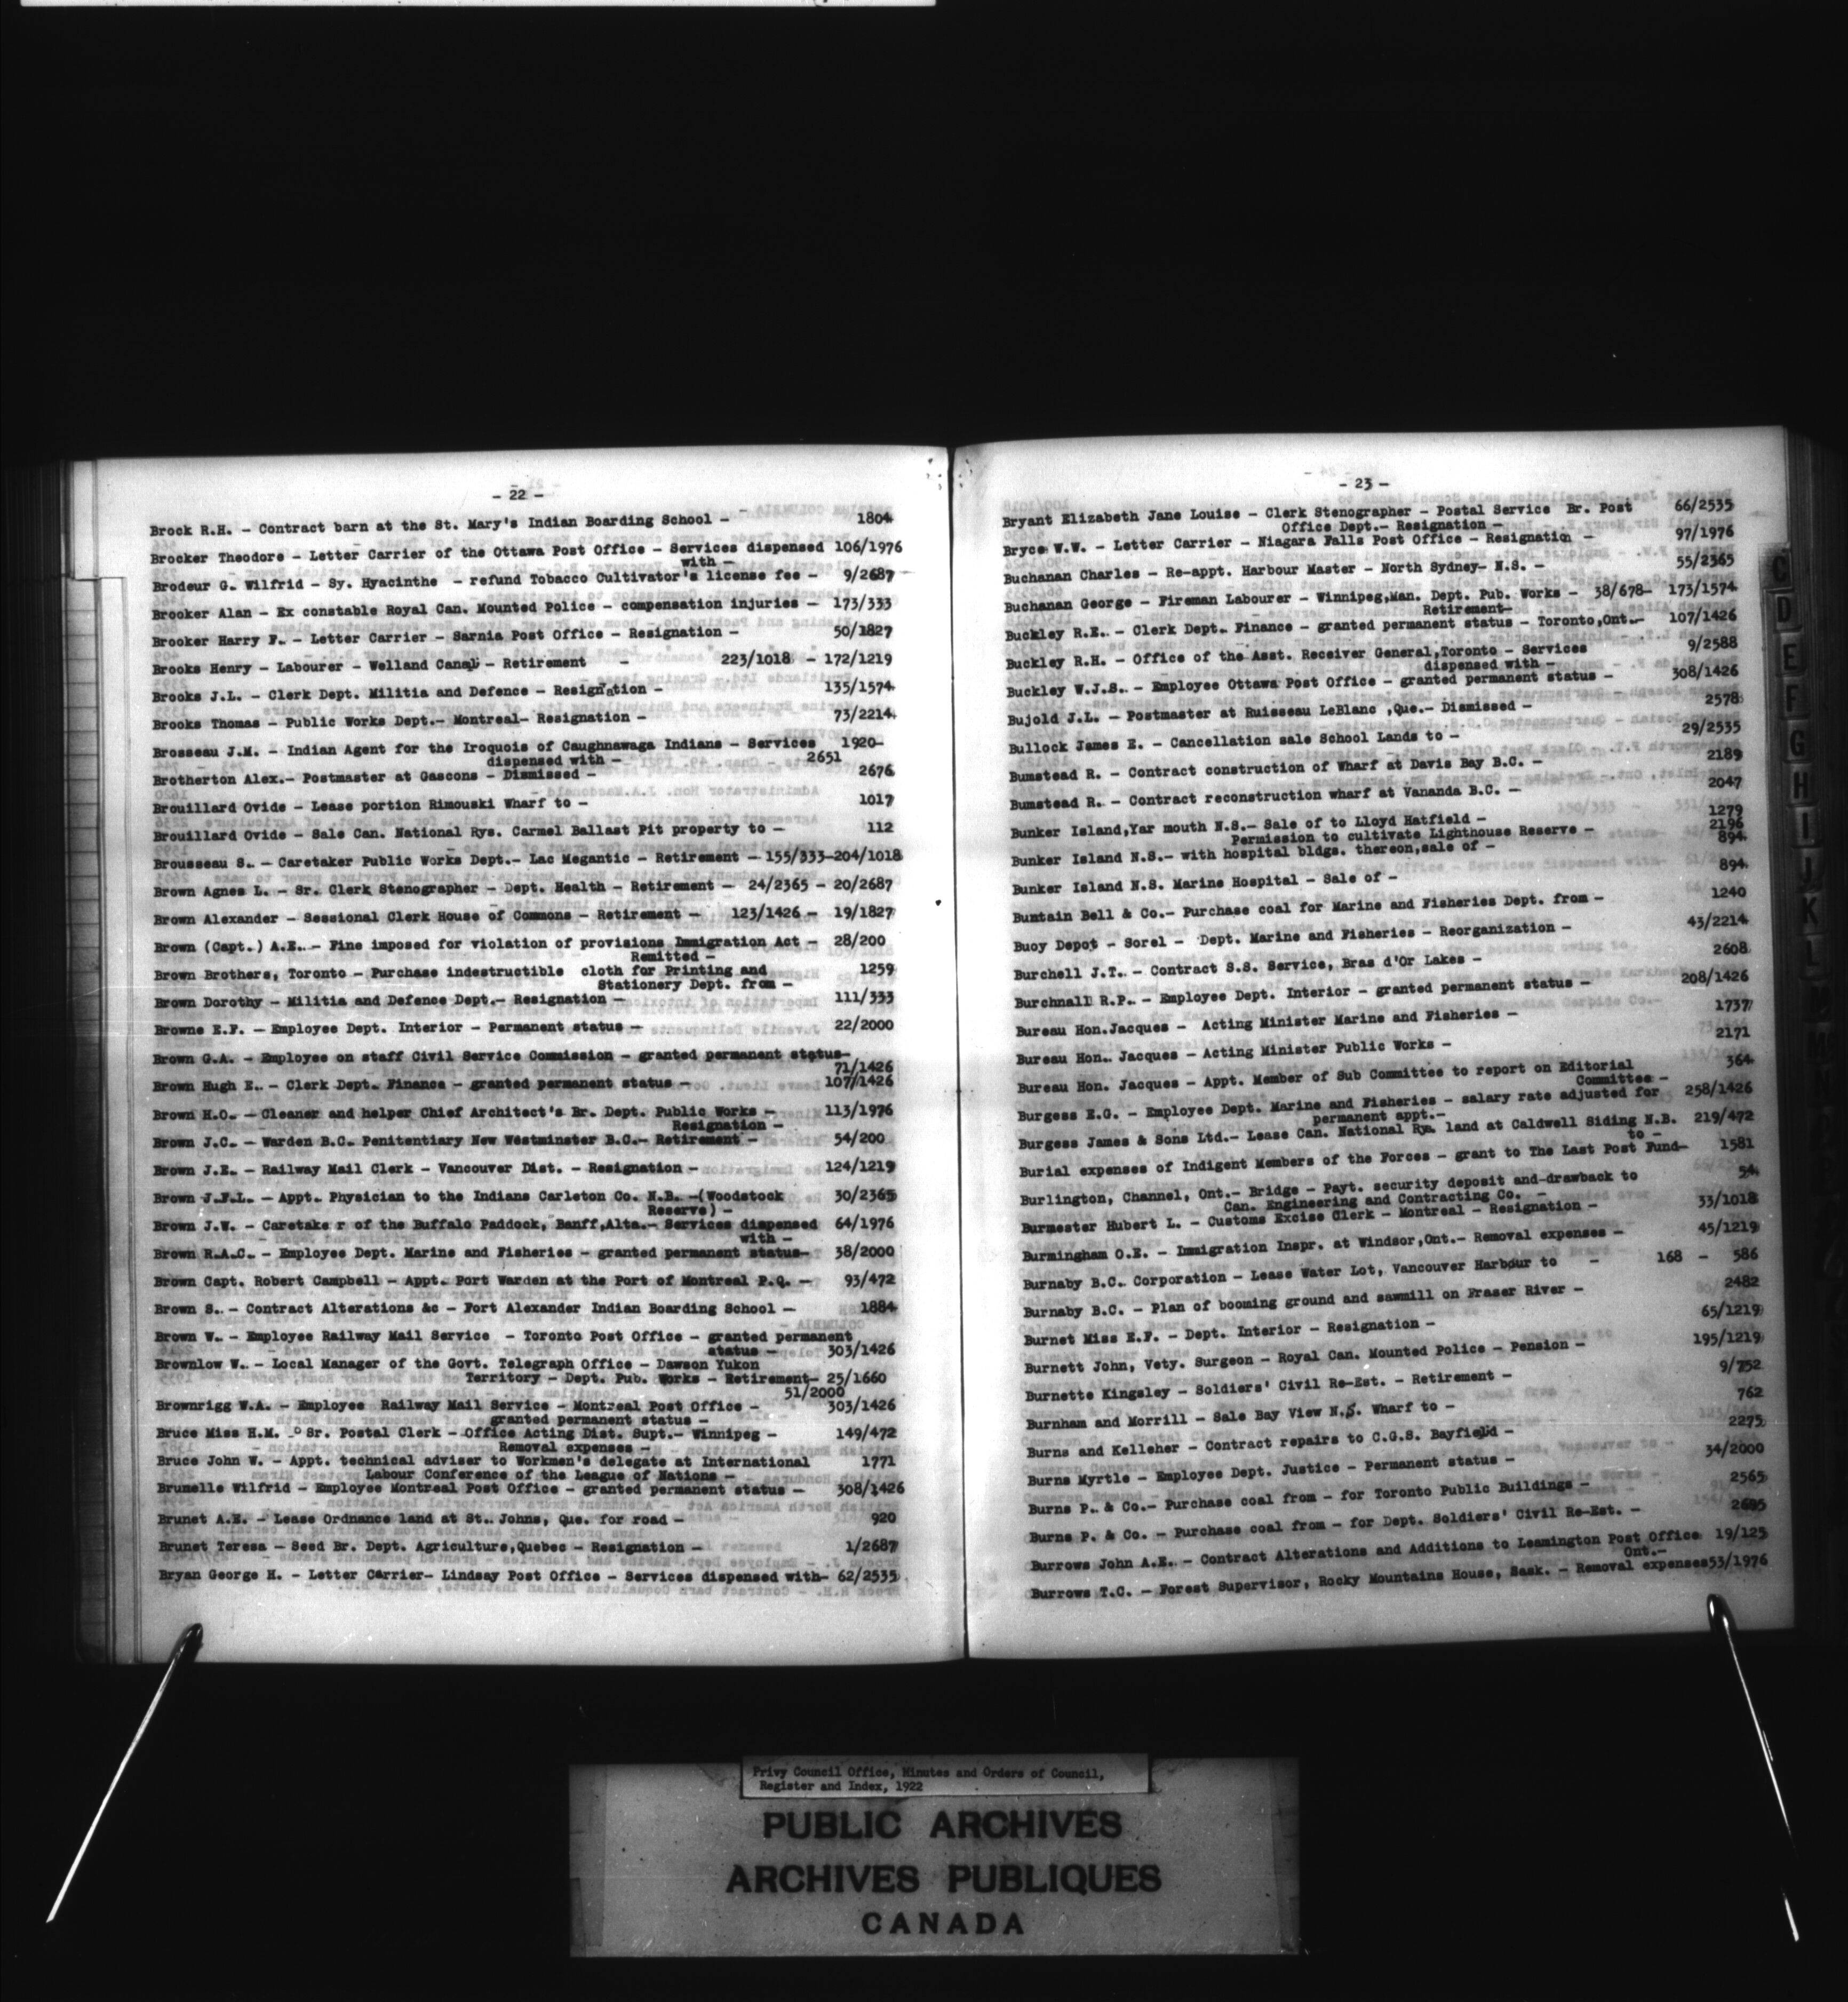 - 22 -
Brock R.H. - Contract barn at the St. Mary's Indian Boarding School - 1804
Brocker Theodore - Letter Carrier of the Ottawa Post Office - Services dispensed 106/1976
with -
Brodeur G. Wilfrid - Sy. Hyacinthe - refund Tobacco Cultivator's license fee - 9/2687
Brooker Alan - Ex constable Royal Can. Mounted Police - compensation injuries - 173/333
Brooker Harry F. - Letter Carrier - Sarnia Post Office - Resignation - 50/1827
Brooks Henry - Labourer - Welland Canal - Retirement - 223/1018 - 172/1219
Brooks J.L. - Clerk Dept. Militia and Defence - Resignation - 135/1574
Brooks Thomas - Public Works Dept.- Montreal- Resignation - 73/2214
Brosseau J.M. - Indian Agent for the Iroquois of Caughnawaga Indians - Services 1920-
dispensed with - 2651
Brotherton Alex.- Postmaster at Gascons - Dismissed - 2676
Brouillard Ovide - Lease portion Rimouski Wharf to - 1017
Brouillard Ovide - Sale Can. National Rys. Carmel Ballast Pit property to - 112
Brousseau S. - Caretaker Public Works Dept.- Lac Megantic - Retirement - 155/333-204/1018
Brown Agnes L. - Sr. Clerk Stenographer - Dept. Health - Retirement - 24/2365 - 20/2687
Brown Alexander - Sessional Clerk House of Commons - Retirement - 123/1426 - 19/1827
Brown (Capt.) A.E. - Fine imposed for violation of provisions Immigration Act - 28/200
Remitted -
Brown Brothers, Toronto - Purchase indestructible cloth for Printing and 1259
Stationery Dept. from -
Brown Dorothy - Militia and Defence Dept.- Resignation - 111/333
Browne E.F. - Employee Dept. Interior - Permanent status - 22/2000
Brown G.A. - Employee on staff Civil Service Commission - granted permanent status-
71/1426
Brown Hugh E. - Clerk Dept. Finance - granted permanent status - 107/1426
Brown H.O. - Cleaner and helper Chief Architect's Br. Dept. Public Works - 113/1976
Resignation -
Brown J.C. - Warden B.C. Penitentiary New Westminster B.C.- Retirement - 54/200
Brown J.E. - Railway Mail Clerk - Vancouver Dist. - Resignation - 124/1219
Brown J.F.L. - Appt. Physician to the Indians Carleton Co. N.B. -(Woodstock 30/2365
Reserve) -
Brown J.W. - Caretake r of the Buffalo Paddock, Banff,Alta.- Services dispensed 64/1976
with -
Brown R.A.C. - Employee Dept. Marine and Fisheries - granted permanent status- 38/2000
Brown Capt. Robert Campbell - Appt. Port Warden at the Port of Montreal P.Q. - 93/472
Brown S. - Contract Alterations &c - Fort Alexander Indian Boarding School - 1884
Brown W. - Employee Railway Mail Service - Toronto Post Office - granted permanent
status - 303/1426
Brownlow W. - Local Manager of the Govt. Telegraph Office - Dawson Yukon
Territory - Dept. Pub. Works - Retirement- 25/1660
51/2000
Brownrigg W.A. - Employee Railway Mail Service - Montreal Post Office - 303/1426
granted permanent status -
Bruce Miss H.M. - Sr. Postal Clerk - Office Acting Dist. Supt.- Winnipeg - 149/472
Removal expenses -
Bruce John W. - Appt. technical adviser to Workmen's delegate at International 1771
Labour Conference of the League of Nations -
Brumelle Wilfrid - Employee Montreal Post Office - granted permanent status - 308/1426
Brunet A.E. - Lease Ordnance land at St. Johns, Que. for road - 920
Brunet Teresa - Seed Br. Dept. Agriculture,Quebec - Resignation - 1/2687
Bryan George H. - Letter Carrier- Lindsay Post Office - Services dispensed with- 62/2535
- 23 -
Bryant Elizabeth Jane Louise - Clerk Stenographer - Postal Service Br. Post 66/2535
Office Dept.- Resignation -
Bryce W.W. - Letter Carrier - Niagara Falls Post Office - Resignation - 97/1976
Buchanan Charles - Re-appt. Harbour Master - North Sydney- N.S. - 55/2365
Buchanan George - Fireman Labourer - Winnipeg,Man. Dept. Pub. Works - 38/678- 173/1574
Retirement-
Buckley R.E. - Clerk Dept. Finance - granted permanent status - Toronto,Ont.- 107/1426
Buckley R.H. - Office of the Asst. Receiver General,Toronto - Services 9/2588
dispensed with -
Buckley W.J.S. - Employee Ottawa Post Office - granted permanent status - 308/1426
Bujold J.L. - Postmaster at Ruisseau LeBlanc ,Que.- Dismissed - 2578
Bullock James E. - Cancellation sale School Lands to - 29/2535
Bumstead R. - Contract construction of Wharf at Davis Bay B.C. - 2189
Bumstead R. - Contract reconstruction wharf at Vananda B.C. - 2047
Bunker Island,Yar mouth N.S.- Sale of to Lloyd Hatfield - 1279
Permission to cultivate Lighthouse Reserve - 2196
Bunker Island N.S.- with hospital bldgs. thereon,sale of - 894
Bunker Island N.S. Marine Hospital - Sale of - 894
Buntain Bell & Co.- Purchase coal for Marine and Fisheries Dept. from - 1240
Buoy Depot - Sorel - Dept. Marine and Fisheries - Reorganization - 43/2214
Burchell J.T. - Contract S.S. Service, Bras d'Or Lakes - 2608
Burchnall R.P. - Employee Dept. Interior - granted permanent status - 208/1426
Bureau Hon.Jacques - Acting Minister Marine and Fisheries - 1737
Bureau Hon. Jacques - Acting Minister Public Works - 2171
Bureau Hon. Jacques - Appt. Member of Sub Committee to report on Editorial 364
Committee -
Burgess E.G. - Employee Dept. Marine and Fisheries - salary rate adjusted for 258/1426
permanent appt.-
Burgess James & Sons Ltd.- Lease Can. National Rys. land at Caldwell Siding N.B. 219/472
to -
Burial expenses of Indigent Members of the Forces - grant to The Last Post Fund- 1581
Burlington, Channel, Ont.- Bridge - Payt. security deposit and-drawback to 54
Can. Engineering and Contracting Co. -
Burmester Hubert L. - Customs Excise Clerk - Montreal - Resignation - 33/1018
Burmingham O.E. - Immigration Inspr. at Windsor,Ont.- Removal expenses - 45/1219
Burnaby B.C. Corporation - Lease Water Lot, Vancouver Harbour to - 168 - 586
Burnaby B.C. - Plan of booming ground and sawmill on Fraser River - 2482
Burnet Miss E.F. - Dept. Interior - Resignation - 65/1219
Burnett John, Vety. Surgeon - Royal Can. Mounted Police - Pension - 195/1219
Burnette Kingsley - Soldiers' Civil Re-Est. - Retirement - 9/752
Burnham and Morrill - Sale Bay View N.S. Wharf to - 762
Burns and Kelleher - Contract repairs to C.G.S. Bayfield - 2275
Burns Myrtle - Employee Dept. Justice - Permanent status - 34/2000
Burns P. & Co.- Purchase coal from - for Toronto Public Buildings - 2565
Burns P. & Co. - Purchase coal from - for Dept. Soldiers' Civil Re-Est. -
Burrows John A.E. - Contract Alterations and Additions to Leamington Post Office 19/125
Ont.-
Burrows T.C. - Forest Supervisor, Rocky Mountains House, Sask. - Removal expenses53/1976
C
D
E
F
G
H
I
J
K
L
Privy Council Office, Minutes and Orders of Council,
Register and Index, 1922
PUBLIC ARCHIVES
ARCHIVES PUBLIQUES
CANADA